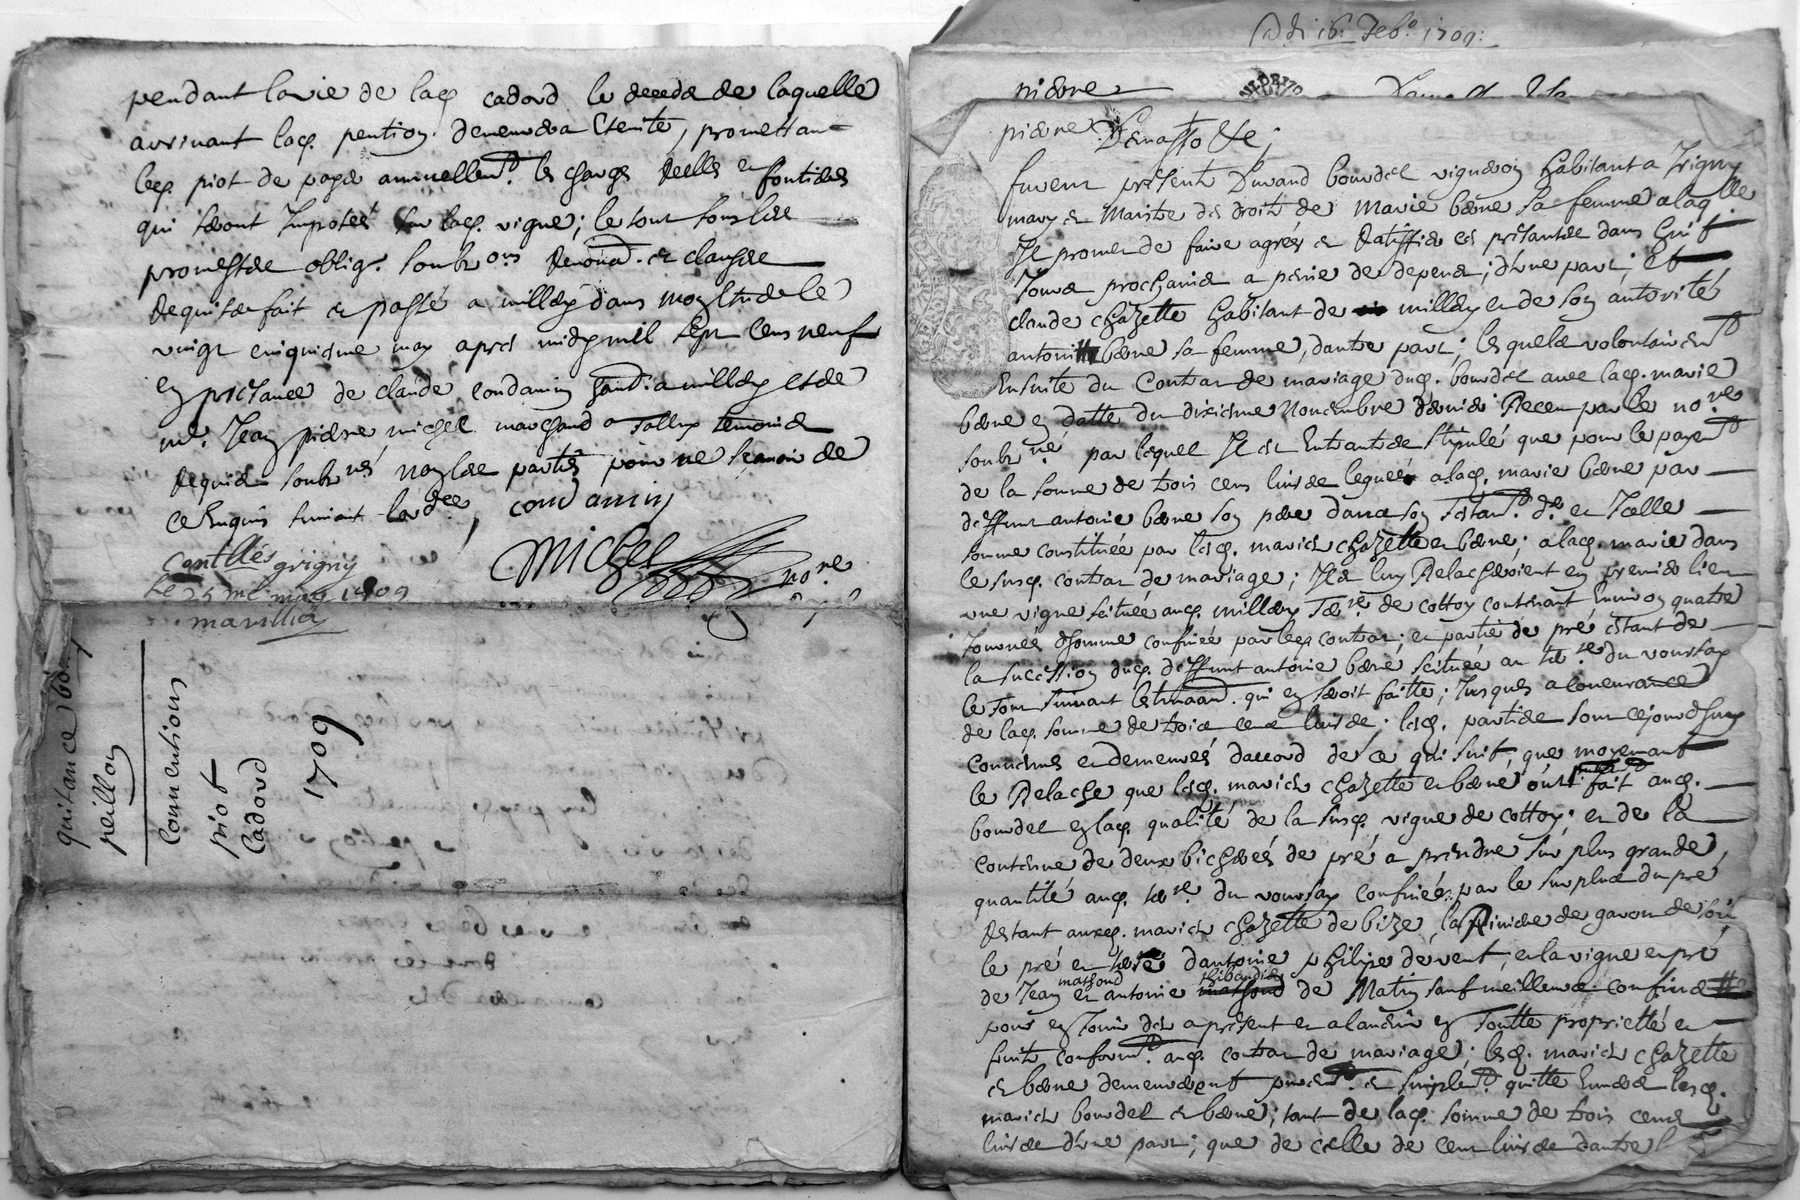 pendant la vie de lad. cadord le deceds de laquelle
arrivant lad. pention demeurera Eteinte, promettant
led. piot de payer annuellemt. les charges Reelles et fontieres
qui seront Imposées sur lad. vigne; le tout sous les
promesses oblig. soubons. Renond. et clauses
Requises fait et passé a millery dans mon Etude le
vingt cinquieme may apres midy mil sept cens neuf
en presance de claude condamin habit. a millery et de
mr. Jean pierre michel marchand a tallux temoins
Requis soubnés non les parties pour ne scavoir de
ce Enquis suivant lordce,
condamin
Michel
nore
Contllé grigny
Le 25me may 1709
marillier
quitance
peillon
Conventions
piot
Cadord
1709
Adi 16: Feb. 1709:
pierre
pierre
furent presents Durand bourdel vigneron habitant a Irigny
mary et Maistre des droits de Marie bene sa femme a laqlle
Il promet de faire agréer et Ratiffier ces presantes dans huit
Jours prochains a peine de depens; d'une part; et
claude chazette habitant de millery et de son autorité
antoinette bene sa femme, dautre part; lesquels volontairemt
Ensuite du Contrat de mariage dud. bourdel avec lad. marie
bene en datte du dixieme Novembre dernier Receu par le nore
soubné par lequel Il est Entrautres stipulé que pour le payemt
de la somme de trois cens livres leguée a lad. marie bene par
deffunt antoine bene son pere dans son testamt. dr. et Icelle
somme constituée par lesd. mariés chazette et bene; a lad. marie dans
le susd. contrat de mariage; Ils luy Relacheroient en premier lieu
une vigne scituée aud. millery terre de cottoy contenant Environ quatre
Journées dhomme confinée par led. contrat; et partie de pré estant de
la succession dud. deffunt antoine bene scituée au tere du voursay
le tout suivant lestimaon. qui en seroit faitte; Jusques a concurance
de lad. somme de trois cens livres; lesd. parties sont cejourdhuy
convenues et demeurées daccord de ce qui suit, que moyenant
le Relache que lesd. mariés chazette et bene ont fait aud.
bourdel en lad. qualité de la susd. vigne de cottoy; et de la
contenue de deux bicherées de pré a prendre sur plus grande
quantité aud. tere du voursay confinée par le surplus du pré
Restant auxd. mariés chazette de bize, la Riviere de garon de soir
le pré et terre dantoine philipe de vent, et la vigne et pré
de Jean massond et antoine thibaudier de Matin sauf meilleurs confins
pour en Jouir des a present et a lavenir en toutte proprietté et
fruits conformt. aud. contrat de mariage; lesd. mariés chazette
et bene demeureront puremt. et simplemt. quitte Envers lesd.
mariés bourdel et bene; tant de lad. somme de trois cens
livres d'une part; que de celle de cent livres dautre